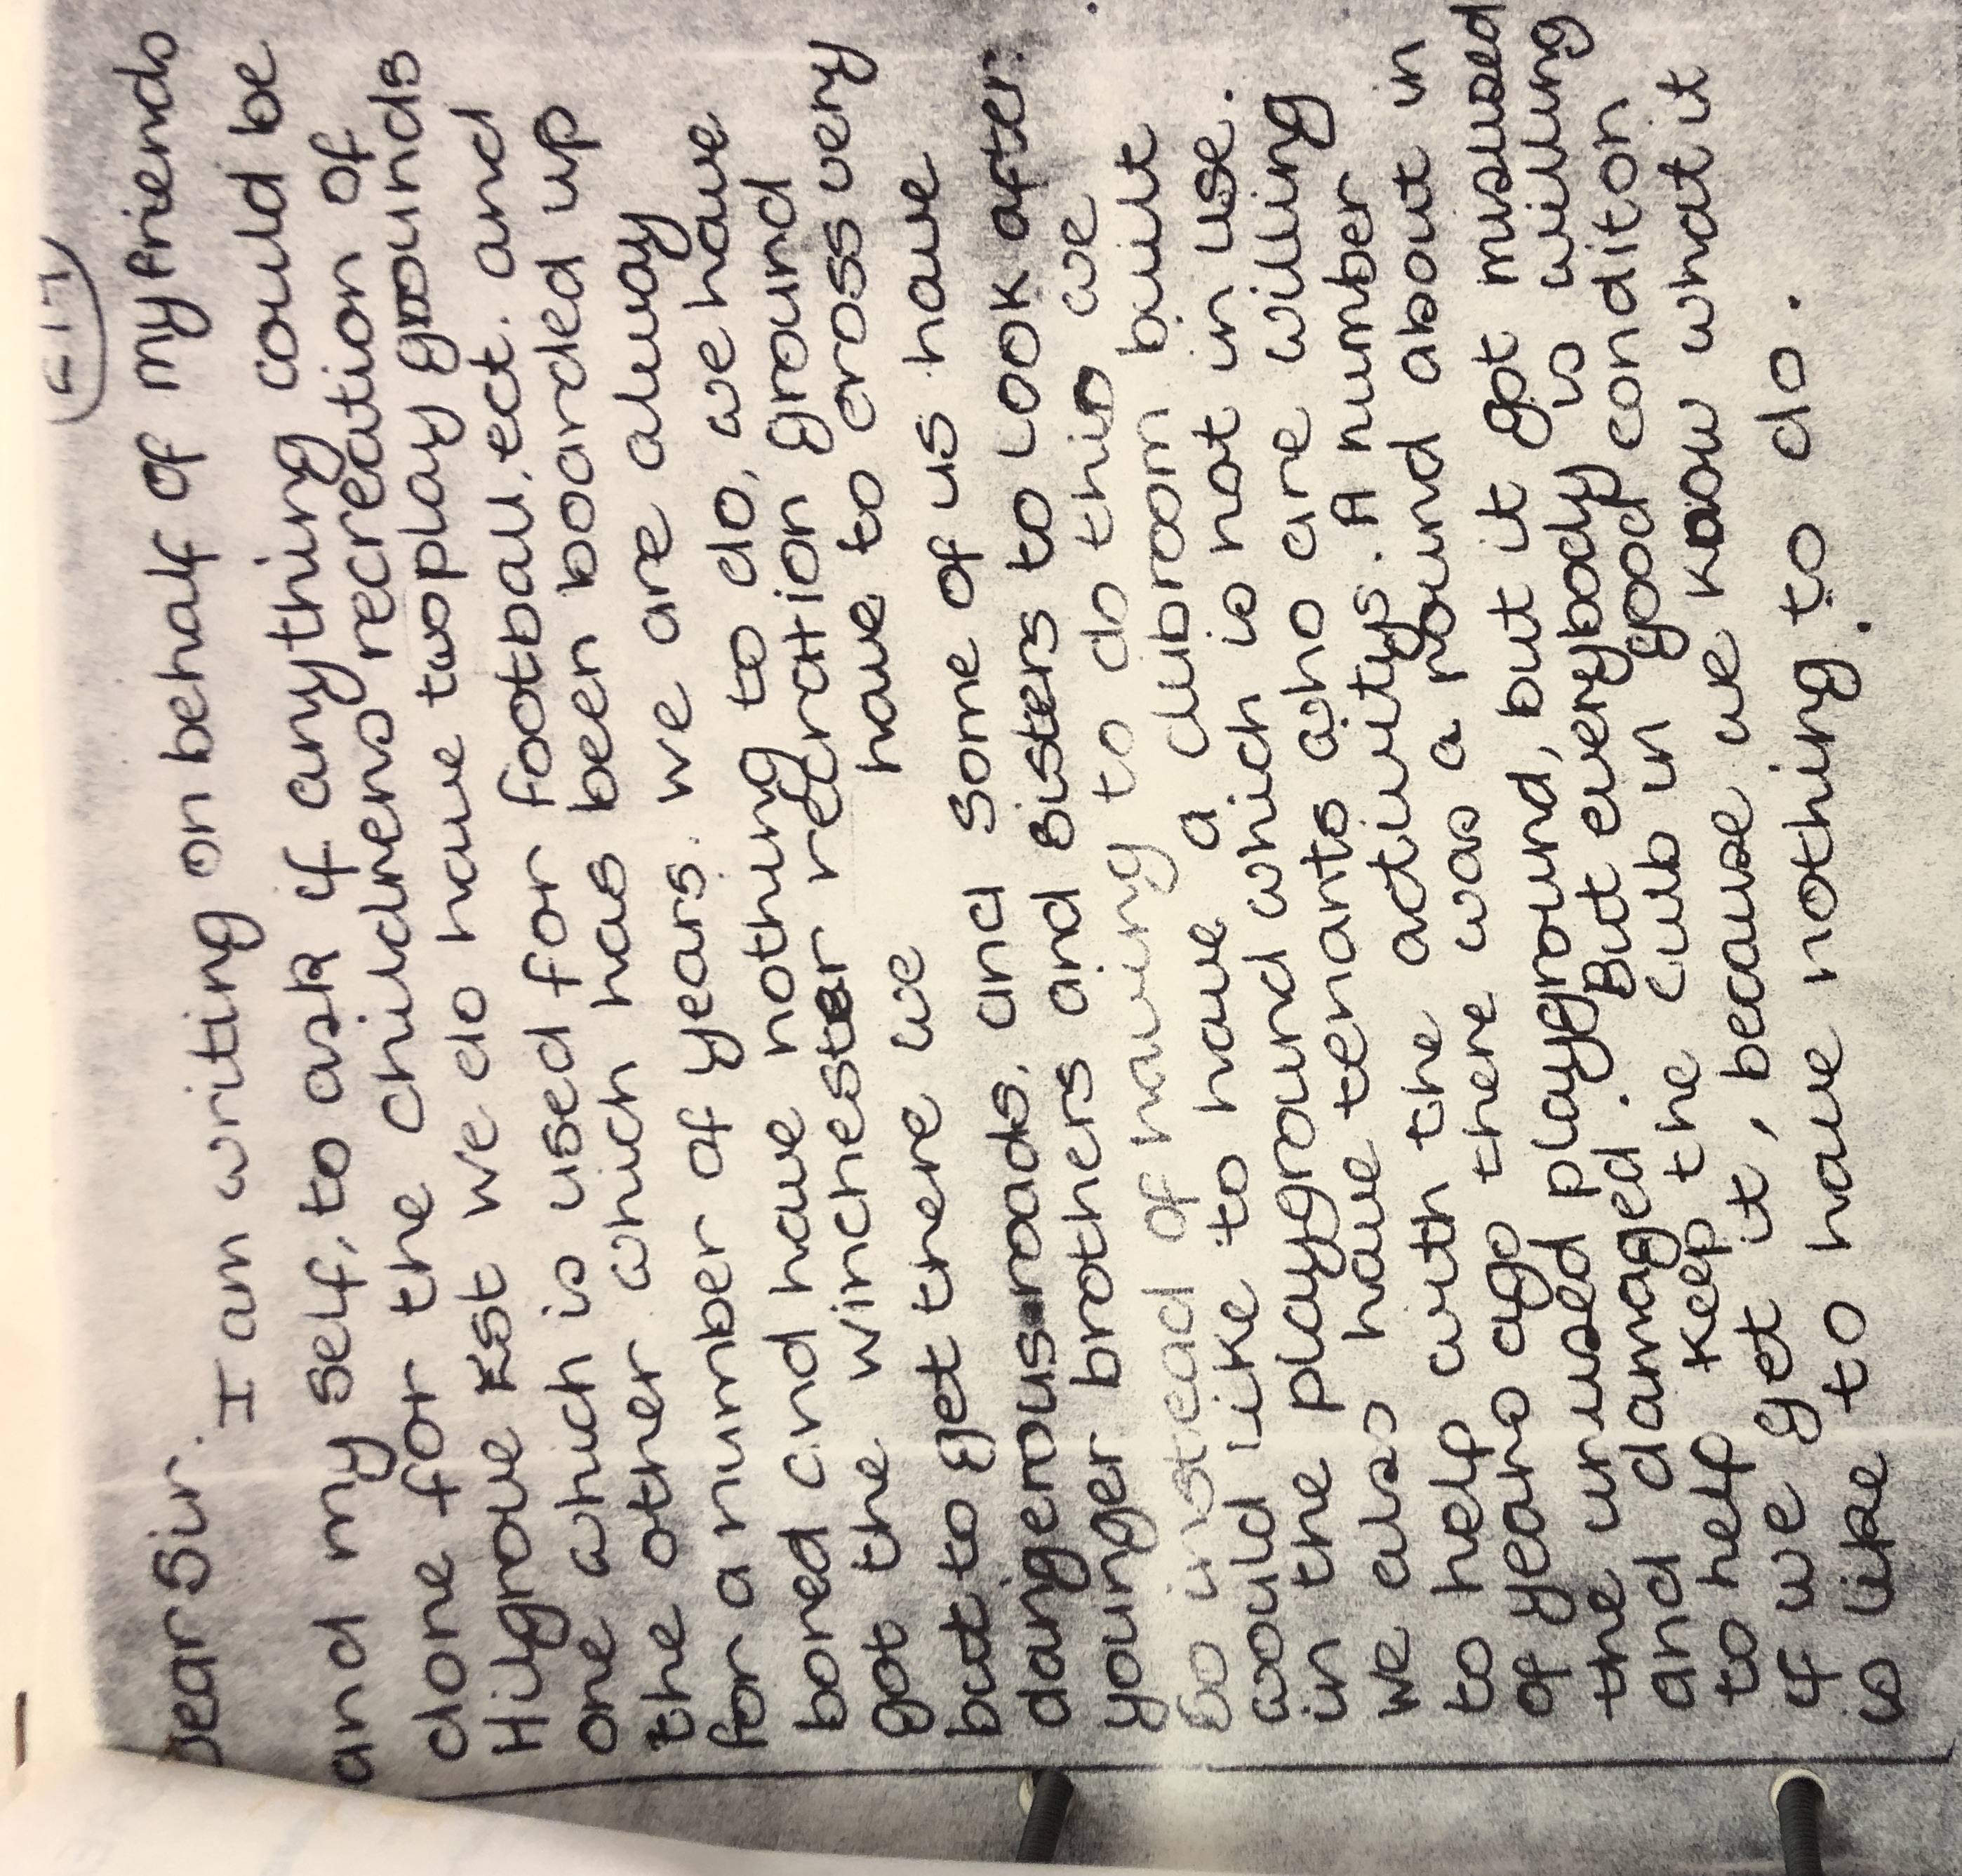 E17
Dear Sir.
I am writing on behalf of my friends
and my self, to ask if anything could be
done for the childrens recreation of
Hilgrove Est we do have two play grounds
one which is used for football, ect. and
the other which has been boarded up
for a number of years. we are alway
bored and have nothing to do, we have
got the winchester recration ground
but to get there we have to cross very
dangerous roads, and some of us have
younger brothers and sisters to look after.
So instead of having to do this we
would like to have a clubroom built
in the playground which is not in use.
we also have tenants who are willing
to help with the activitys. A number
of years ago there was a round about in
the unused playground, but it got musused
and damaged. But everybody is willing
to help keep the club in good conditon
if we get it, because we know what it
is like to have nothing to do.